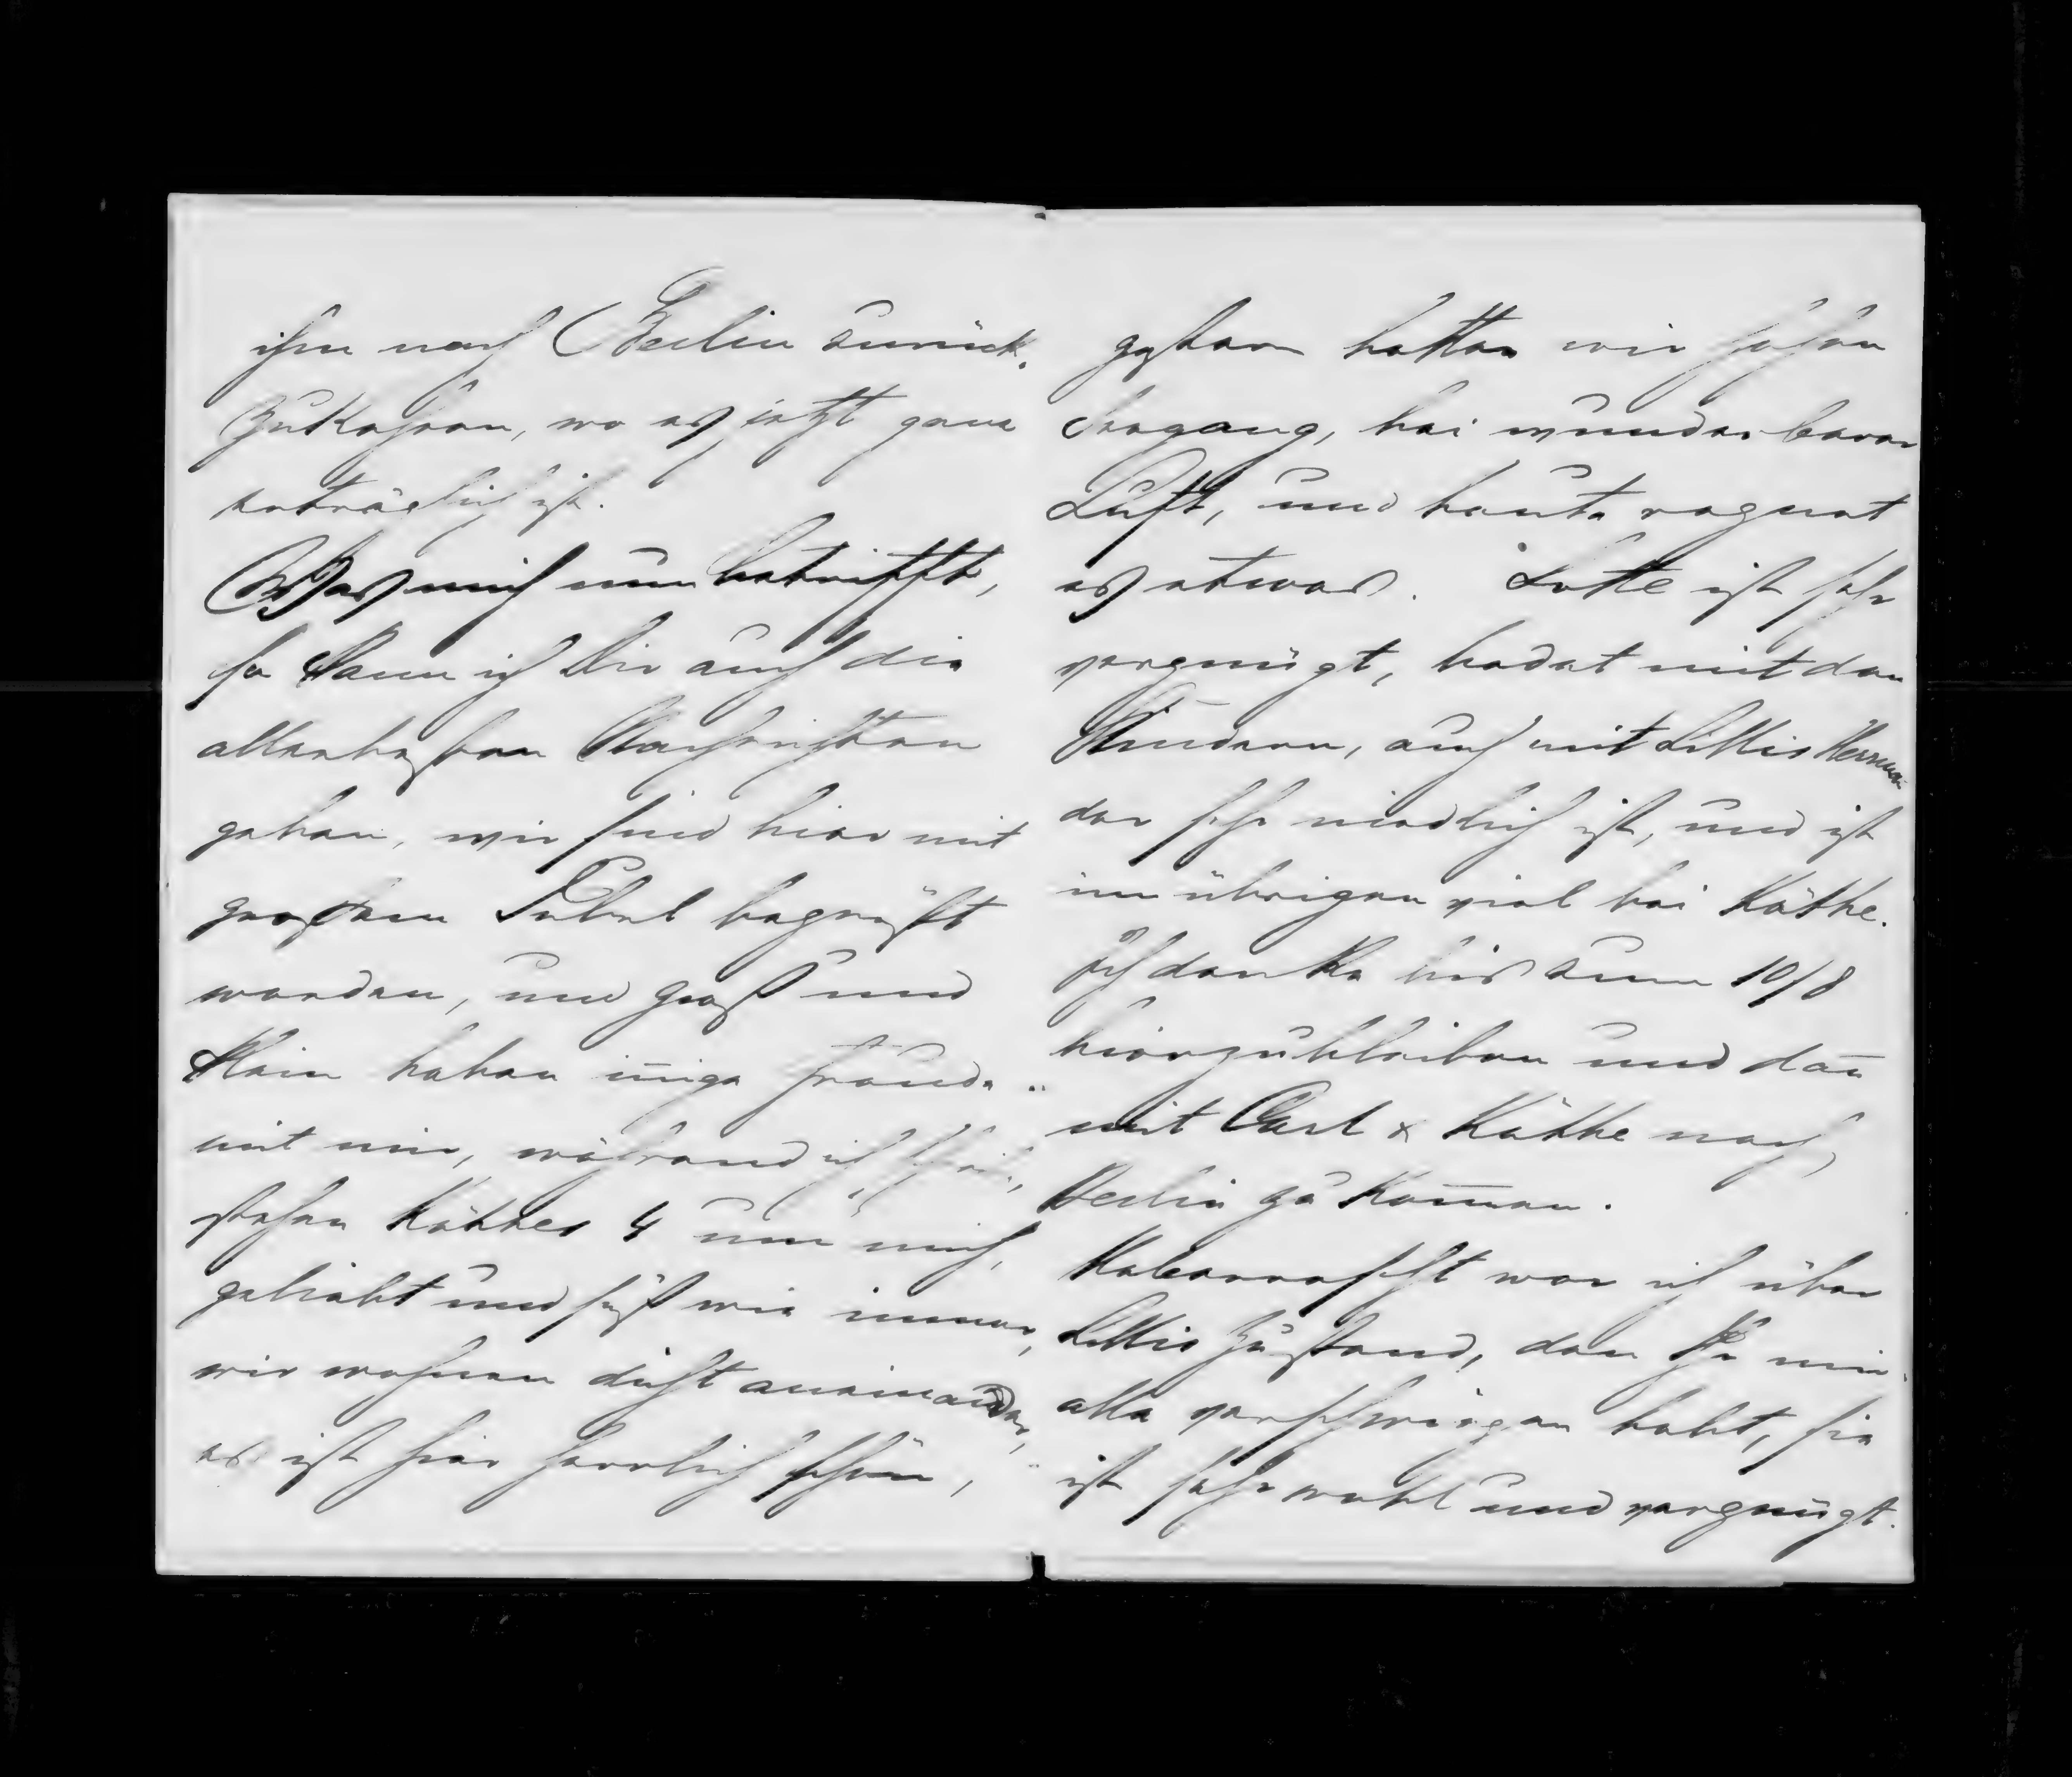 ihm nach Berlin zurück,
zukehren, wo es jetzt ganz
erträglich ist.
Was mich nun betrifft,
so kann ich Dir auch die
allerbesten Nachrichten
geben, wir sind hier mit
großem Jubel begrüßt
worden, und groß und
klein haben im̄ige Freude
mit mir, während ich schreibe,
stehen Käthes 4 um mich,
geliebt und süß wie immer,
wir wohnen dicht aneinander,
es ist hier herrlich schön,
gestern hatten wir hohen
Seegang, bei wunderbarer
Luft, und heute regnet
es etwas. Lotte ist sehr
vergnügt, badet mit den
Kindern, auch mit Lillis Herman
der sehr niedlich ist, und ist
im übrigen viel bei Käthe.
Ich denke bis zum 10/8
hierzubleiben und dan̄
mit Carl & Käthe nach
Berlin zu kom̄en.
überrascht war ich über
Lillis Zustand, den Ihr mir
alle verschwiegen habt, sie
ist sehr wohl und vergnügt.